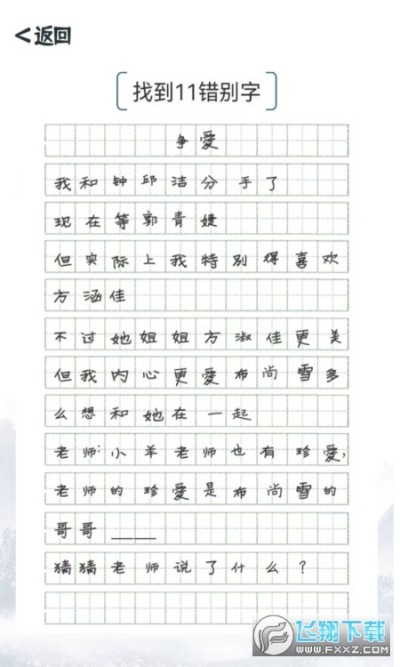 <返回
找到11错别字
争爱
我和钟邱洁分手了
现在等郭青婕
但实际上我特别得喜欢
方涵佳
不过她姐姐方淑佳更美
但我内心更爱布尚雪多
么想和她在一起
老师:小羊老师也有珍爱,
老师的珍爱是布尚雪的
哥哥____
猜猜老师说了什么?
飞翔下载
WWW.FXXZ.COM